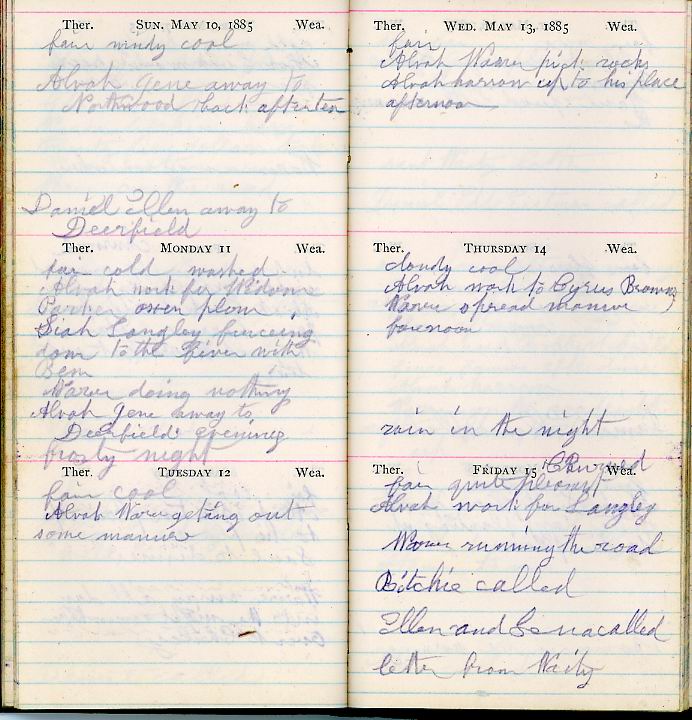 Ther. SUN. MAY 10, 1885 Wea.
fair windy cool
Alvah Gene away to
Northwood back after ten
Daniel Ellen away to
Deerfield
Ther. MONDAY 11 Wea.
fair cold washed
Alvah work for Widow
Parker oxen plow
Siah Langley
down to the River with
Bem
doing nothing
Alvah Gene away to
Deerfield evening
frosty night
Ther. TUESDAY 12 Wea.
fair cool
Alvah geting out
some manure
Ther. WED. MAY 13, 1885 Wea.
fair
Alvah pick rocks
Alvah harrow up to his place
afternoon
Ther. THURSDAY 14 Wea.
cloudy cool
Alvah work to Cyrus Browns
spread manure
forenoon
rain in the night
Ther. FRIDAY 15 Wea.
Churned
fair quite pleasant
Alvah work for Langley
running the road
Ritchie called
Ellen and called
letter from